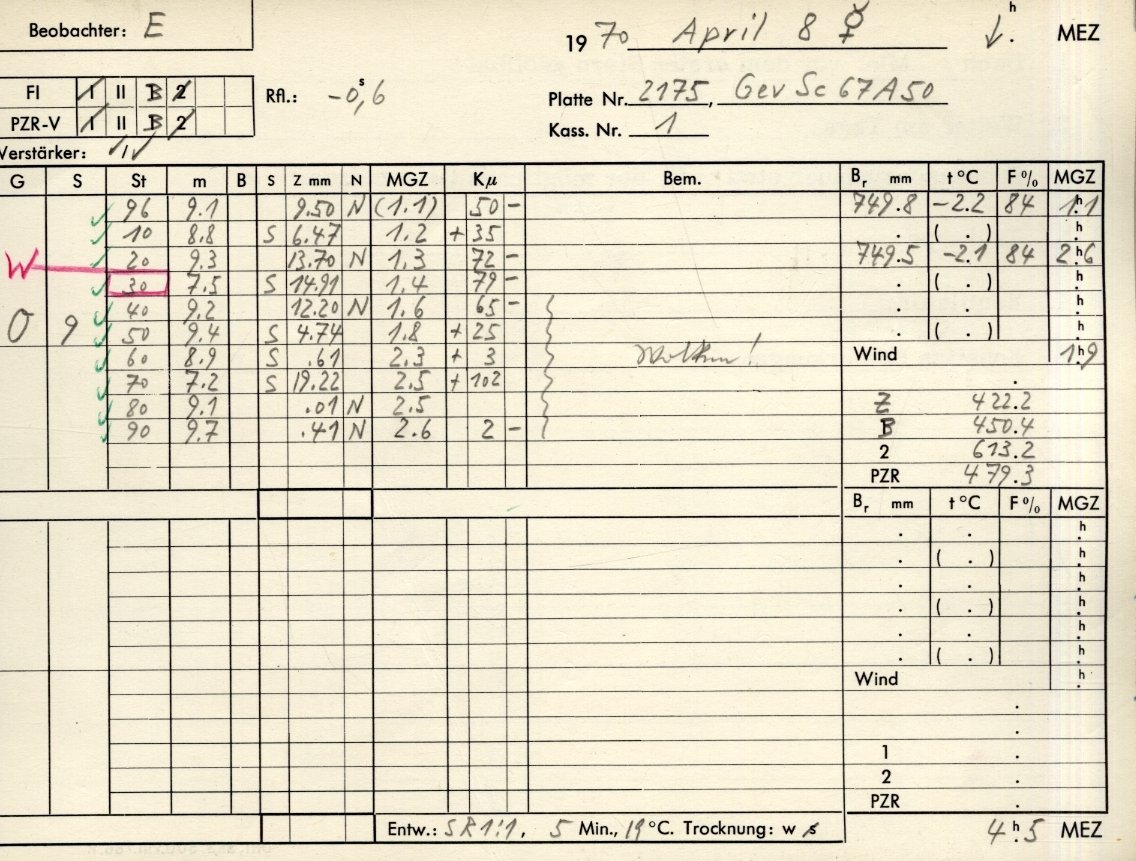 Beobachter: E
1970 April 8 ☿ h . MEZ
FI I II B 2
PZR-V I II B 2
Rfl.: -0,6 s
Platte Nr. 2175, Gev Sc 67A50
Kass. Nr. 1
Verstärker: I
G S St m B S Z mm N MGZ Kμ Bem. Br mm t °C F % MGZ
96 9.1 9.50 N (1.1) 50 - 749.8 -2.2 84 1h.1
10 8.8 S 6.47 1.2 + 35 . ( . ) h.
W 20 9.3 13.70 N 1.3 72 - 749.5 -2.1 84 2h.6
30 7.5 S 14.91 1.4 79 - . ( . ) h.
O 9 40 9.2 12.20 N 1.6 65 - . . h.
50 9.4 S 4.74 1.8 + 25 . ( . ) h.
60 8.9 S .61 2.3 + 3 Wolken! Wind 1h.9
70 7.2 S 19.22 2.5 + 102 .
80 9.1 .01 N 2.5 Z 422.2
90 9.7 .41 N 2.6 2 - B 450.4
2 613.2
PZR 479.3
Br mm t °C F % MGZ
. . h.
. ( . ) h.
. . h.
. ( . ) h.
. . h.
. ( . ) h.
Wind h.
.
.
1 .
2 .
PZR .
Entw.: SR 1:1, 5 Min., 19 °C. Trocknung: w s 4h.5 MEZ